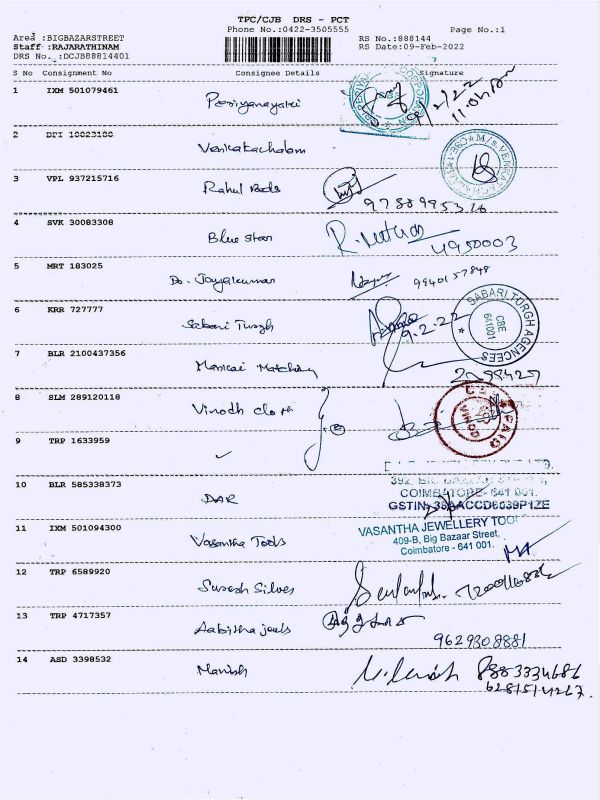 TPC/CJB DRS - PCT
Phone No.:0422-3505555
Page No.:1
Area :BIGBAZARSTREET
Staff :RAJARATHINAM
DRS No.:DCJB88814401
RS No.:888144
RS Date:09-Feb-2022
S No Consignment No Consignee Details Signature
1 IXM 501079461 Periyanayaki 9/2/22
11:01 Am
2 DPI 10023188 Venkatachalam
3 VPL 937215716 Rahul Rods
9788995316
4 SVK 30083308 Blue Star R. Muthu
4950003
5 MRT 183025 Dr. Jayakumar 9940157848
6 KRR 727777 Sabari Turgh 9.2.22
SABARI TURGH AGENCEES
CBE
641001
7 BLR 2100437356 Mankai Matching
2098429
8 SLM 289120118 Vinodh cloth
9 TRP 1633959 ✓
10 BLR 585338373 DAR
392, BIG BAZZAR STREET,
COIMBATORE- 641 001.
GSTIN: 33AACCD6039P1ZE
11 IXM 501094300 Vasantha Tools
VASANTHA JEWELLERY TOOL
409-B, Big Bazaar Street,
Coimbatore - 641 001.
12 TRP 6589920 Suresh Silver
13 TRP 4717357 Aabitha jouls
9629308881
14 ASD 3398532 Manish
8883334686
6281514267.